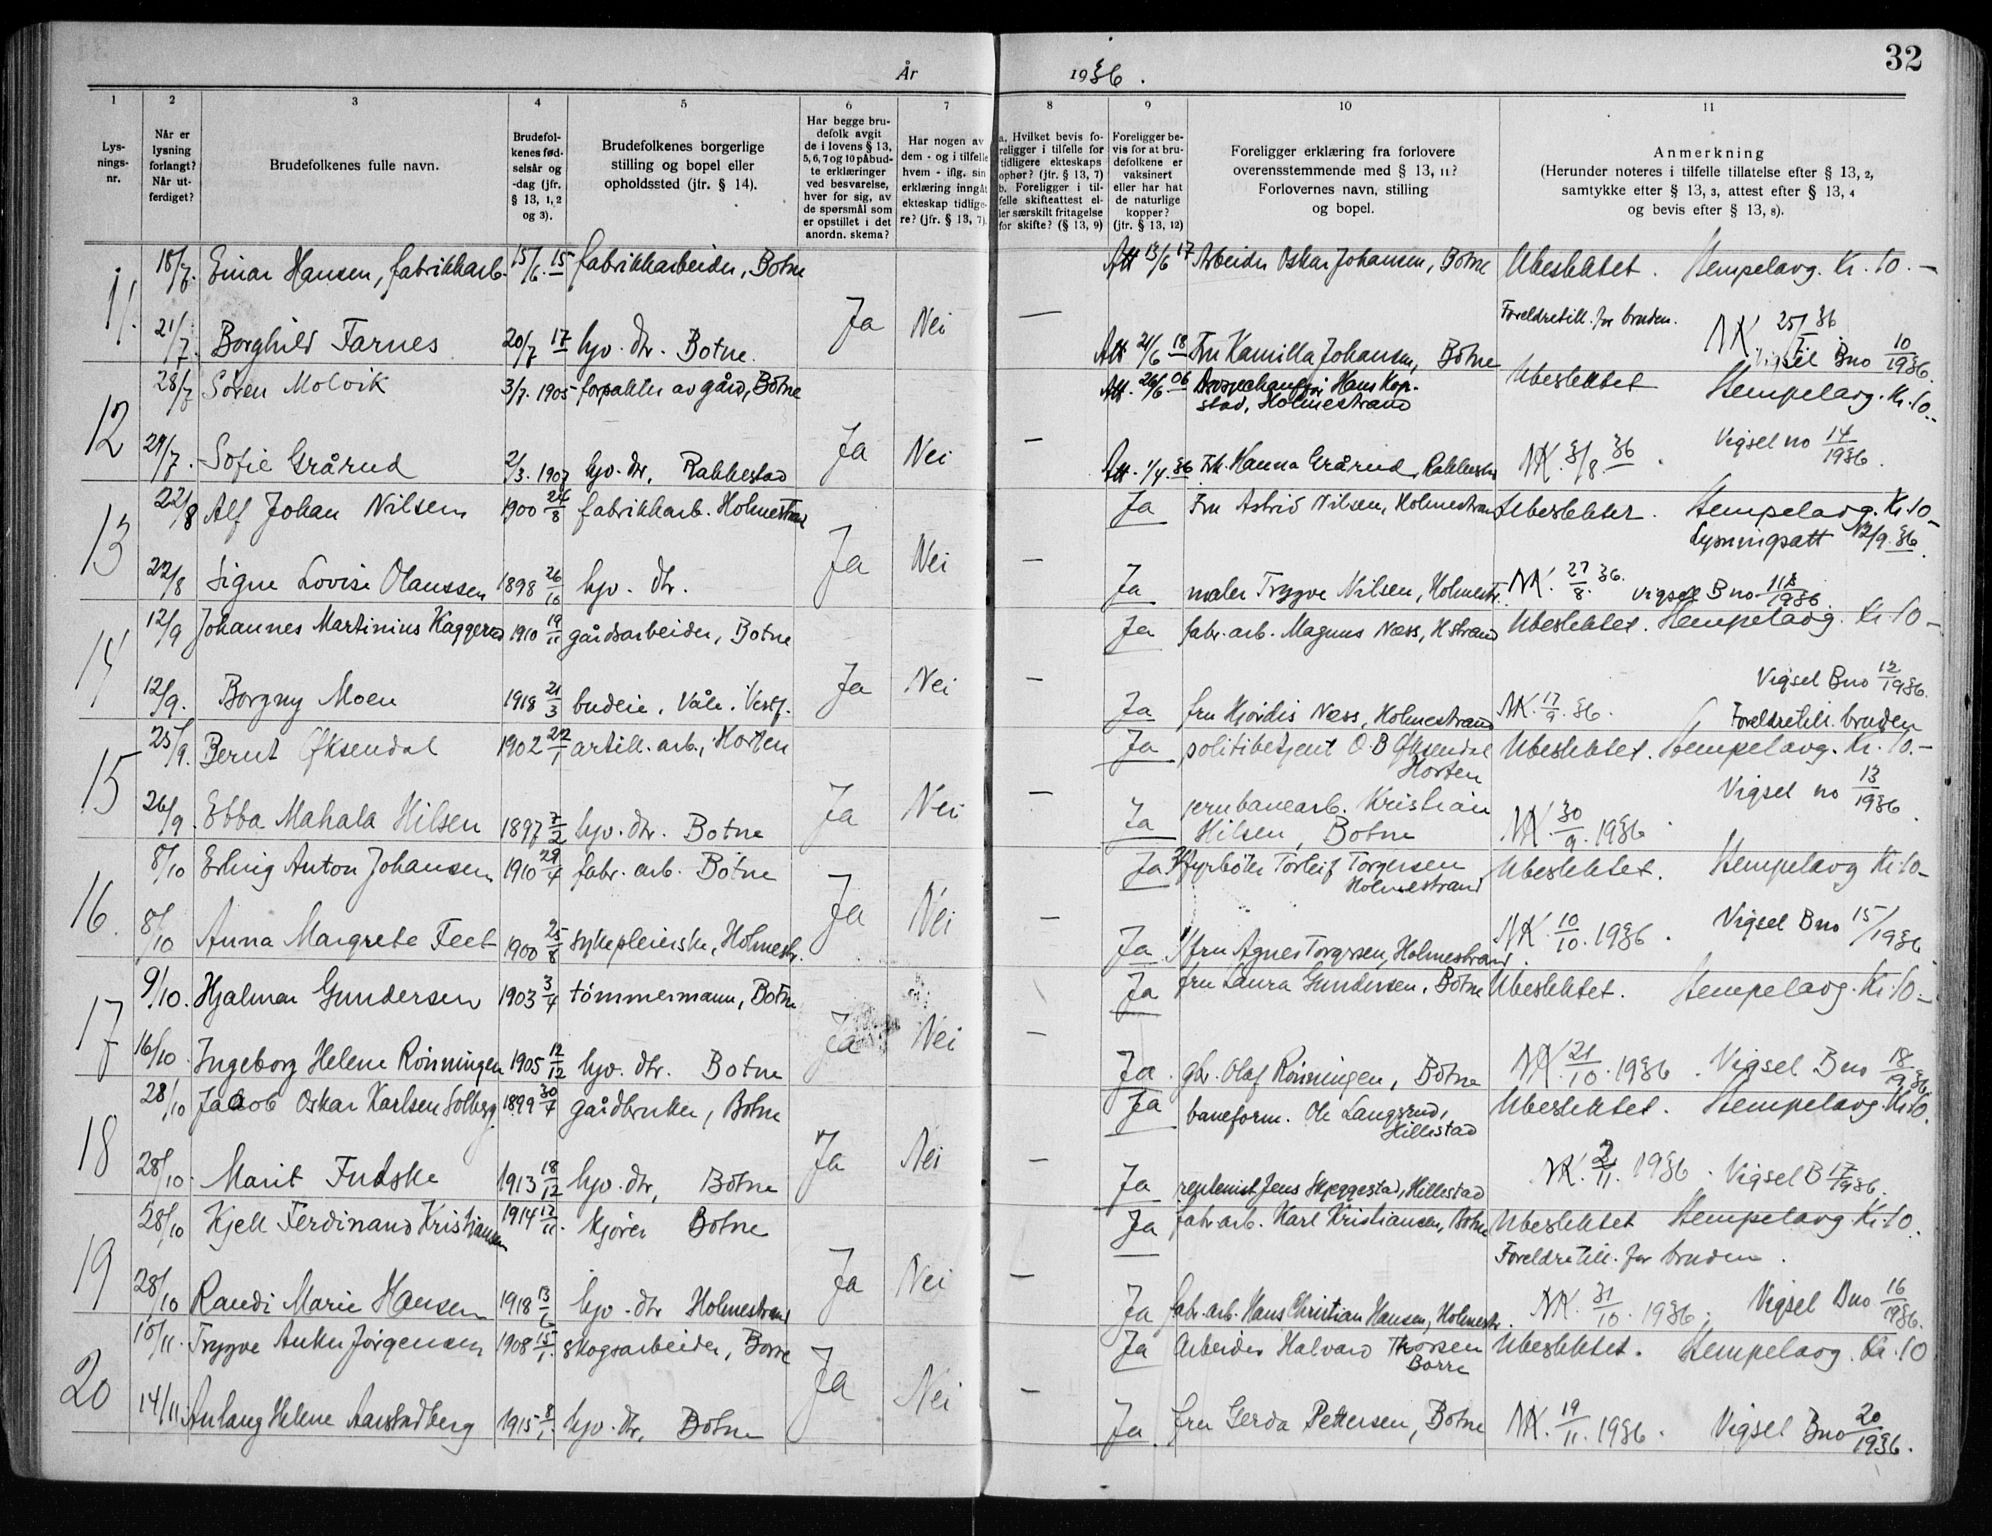 32
År 1936.
1 2 3 4 5 6 7 8 9 10 11
Lys-
nings-
nr.
Når er
lysning
forlangt?
Når ut-
ferdiget?
Brudefolkenes fulle navn.
Brudefol-
kenes fød-
selsår og
-dag (jfr.
§ 13, 1, 2
og 3).
Brudefolkenes borgerlige
stilling og bopel eller
opholdssted (jfr. § 14).
Har begge bru-
defolk avgit
de i lovens § 13,
5, 6, 7 og 10 påbud-
te erklæringer
ved besvarelse,
hver for sig, av
de spørsmål som
er opstillet i det
anordn. skema?
Har nogen av
dem - og i tilfelle
hvem - iflg. sin
erklæring inngåt
ekteskap tidlige-
re? (jfr. § 13, 7).
a. Hvilket bevis fo-
religger i tilfelle for
tidligere ekteskaps
ophør? (jfr. § 13, 7)
b. Foreligger i til-
felle skifteattest el-
ler særskilt fritagelse
for skifte? (§ 13, 9)
Foreligger be-
vis for at bru-
defolkene er
vaksinert
eller har hat
de naturlige
kopper?
(jfr. § 13, 12)
Foreligger erklæring fra forlovere
overensstemmende med § 13, 11?
Forlovernes navn, stilling
og bopel.
Anmerkning
(Herunder noteres i tilfelle tillatelse efter § 13, 2,
samtykke efter § 13, 3, attest efter § 13, 4
og bevis efter § 13, 8).
18/7. Einar Hansen, fabrikkarb. 15/6. 15 fabrikkarbeider, Botne Att 13/6 17 Arbeider Oskar Johansen, Botne Ubeslektet. Stempelavg. Kr. 10.-
11. Ja Nei — Foreldretill. for bruden.
21/7. Borghild Farnes 20/7 17 hjv. dtr. Botne. Att 21/6 18 Fru Kamilla Johansen, Botne NK 25/7 36 Vigsel Bno 10/1936.
28/7 Søren Molvik 3/7. 1905 forpakter av gård, Botne Att. 26/6 06 Hans Kop-
stad, Holmestrand Ubeslektet Stempelavg. Kr. 10.-
12 Ja Nei —
29/7. Sofie Grårud 2/3. 1907 hjv. dtr, Rakkestad Att. 1/4. 36 Frk. Hanna Grårud, Rakkestad NK. 3/8 36. Vigsel no 14/1936.
22/8 Alf Johan Nilsen 1900 24/8 fabrikkarb. Holmestrand Ja Fru Astrid Nilsen, Holmestrand Ubeslektet. Stempelavg. Kr. 10-
13 Ja Nei — Lysningsatt 12/9. 36.
22/8 Signe Lovise Olaussen 1898 26/10 hjv. dtr. Ja maler Trygve Nilsen, Holmestr. NK. 27/8. 36. Vigsel Bno 11B/1936
12/9 Johannes Martinius Kaggerud 1910 19/11 gårdsarbeider, Botne Ja fabr. arb. Magnus Næss, H.strand Ubeslektet. Stempelavg. Kr. 10-
14 Ja Nei —
12/9. Borgny Moen 1918 21/3 budeie, Våle. Vestf. Ja fru Hjørdis Næss, Holmestrand NK. 17/9. 36. Vigsel Bno 12/1936.
Foreldretill. bruden
25/9. Bernt Øksendal 1902 22/1 artill. arb., Horten Ja politibetjent O B Øksendal
Horten Ubeslektet. Stempelavg. Kr. 10.-
15 Ja Nei — Vigsel no 13/1936
26/9. Ebba Mahala Hilsen 1897 7/2 hjv. dtr. Botne Ja jernbanearb. Kristian
Hilsen, Botne NK. 30/9. 1936
8/10 Erling Anton Johansen 1910 29/4 fabr. arb. Botne Ja fyrbøter Torleif Torgersen
Holmestrand Ubeslektet. Stempelavg Kr 10-
16. Ja Nei —
8/10 Anna Margrete Feet 1900 25/8 sykepleierske, Holmestr. Ja fru Agnes Torgersen, Holmestrand. NK. 10/10. 1936. Vigsel Bno 15/1936
9/10. Hjalmar Gundersen 1903 3/4 tømmermann, Botne Ja fru Laura Gundersen, Botne Ubeslektet. Stempelavg. Kr. 10-
17 Ja Nei —
16/10. Ingeborg Helene Rønningen 1905 12/12 hjv. dtr. Botne Ja gbr. Olaf Rønningen, Botne NK. 21/10. 1936. Vigsel Bno 18/1936
28/10 Jacob Oskar Karlsen Solberg 1899 30/4 gårdbruker, Botne Ja baneform. Ole Langsrud,
Hillestad Ubeslektet. Stempelavg. Kr 10.
18 Ja Nei —
28/10. Marit Fudske 1913 18/12 hjv. dtr, Botne Ja Jens Skjeggestad, Hillestad NK. 2/11. 1936. Vigsel B 17/1936.
28/10 Kjell Ferdinand Kristiansen 1914 12/11. kjører Botne Ja fabr. arb. Karl Kristiansen, Botne Ubeslektet Stempelavg Kr 10.
19 Ja Nei — Foreldretill. for bruden.
28/10 Randi Marie Hansen 1918 13/6 hjv. dtr Holmestrand Ja fabr. arb. Hans Christian Hansen, Holmestr. NK. 31/10. 1936. Vigsel Bno 16/1936.
10/11. Trygve Anker Jørgensen 1908 15/1. skogsarbeider, Borre Ja Arbeider Halvard Thorsen
Borre Ubeslektet. Stempelavg. Kr. 10
20 Ja Nei —
14/11 Aslaug Helene Aarstadberg 1915 8/1. hjv. dtr, Botne Ja fru Gerda Pettersen, Botne NK. 19/11. 1936. Vigsel Bno 20/1936.